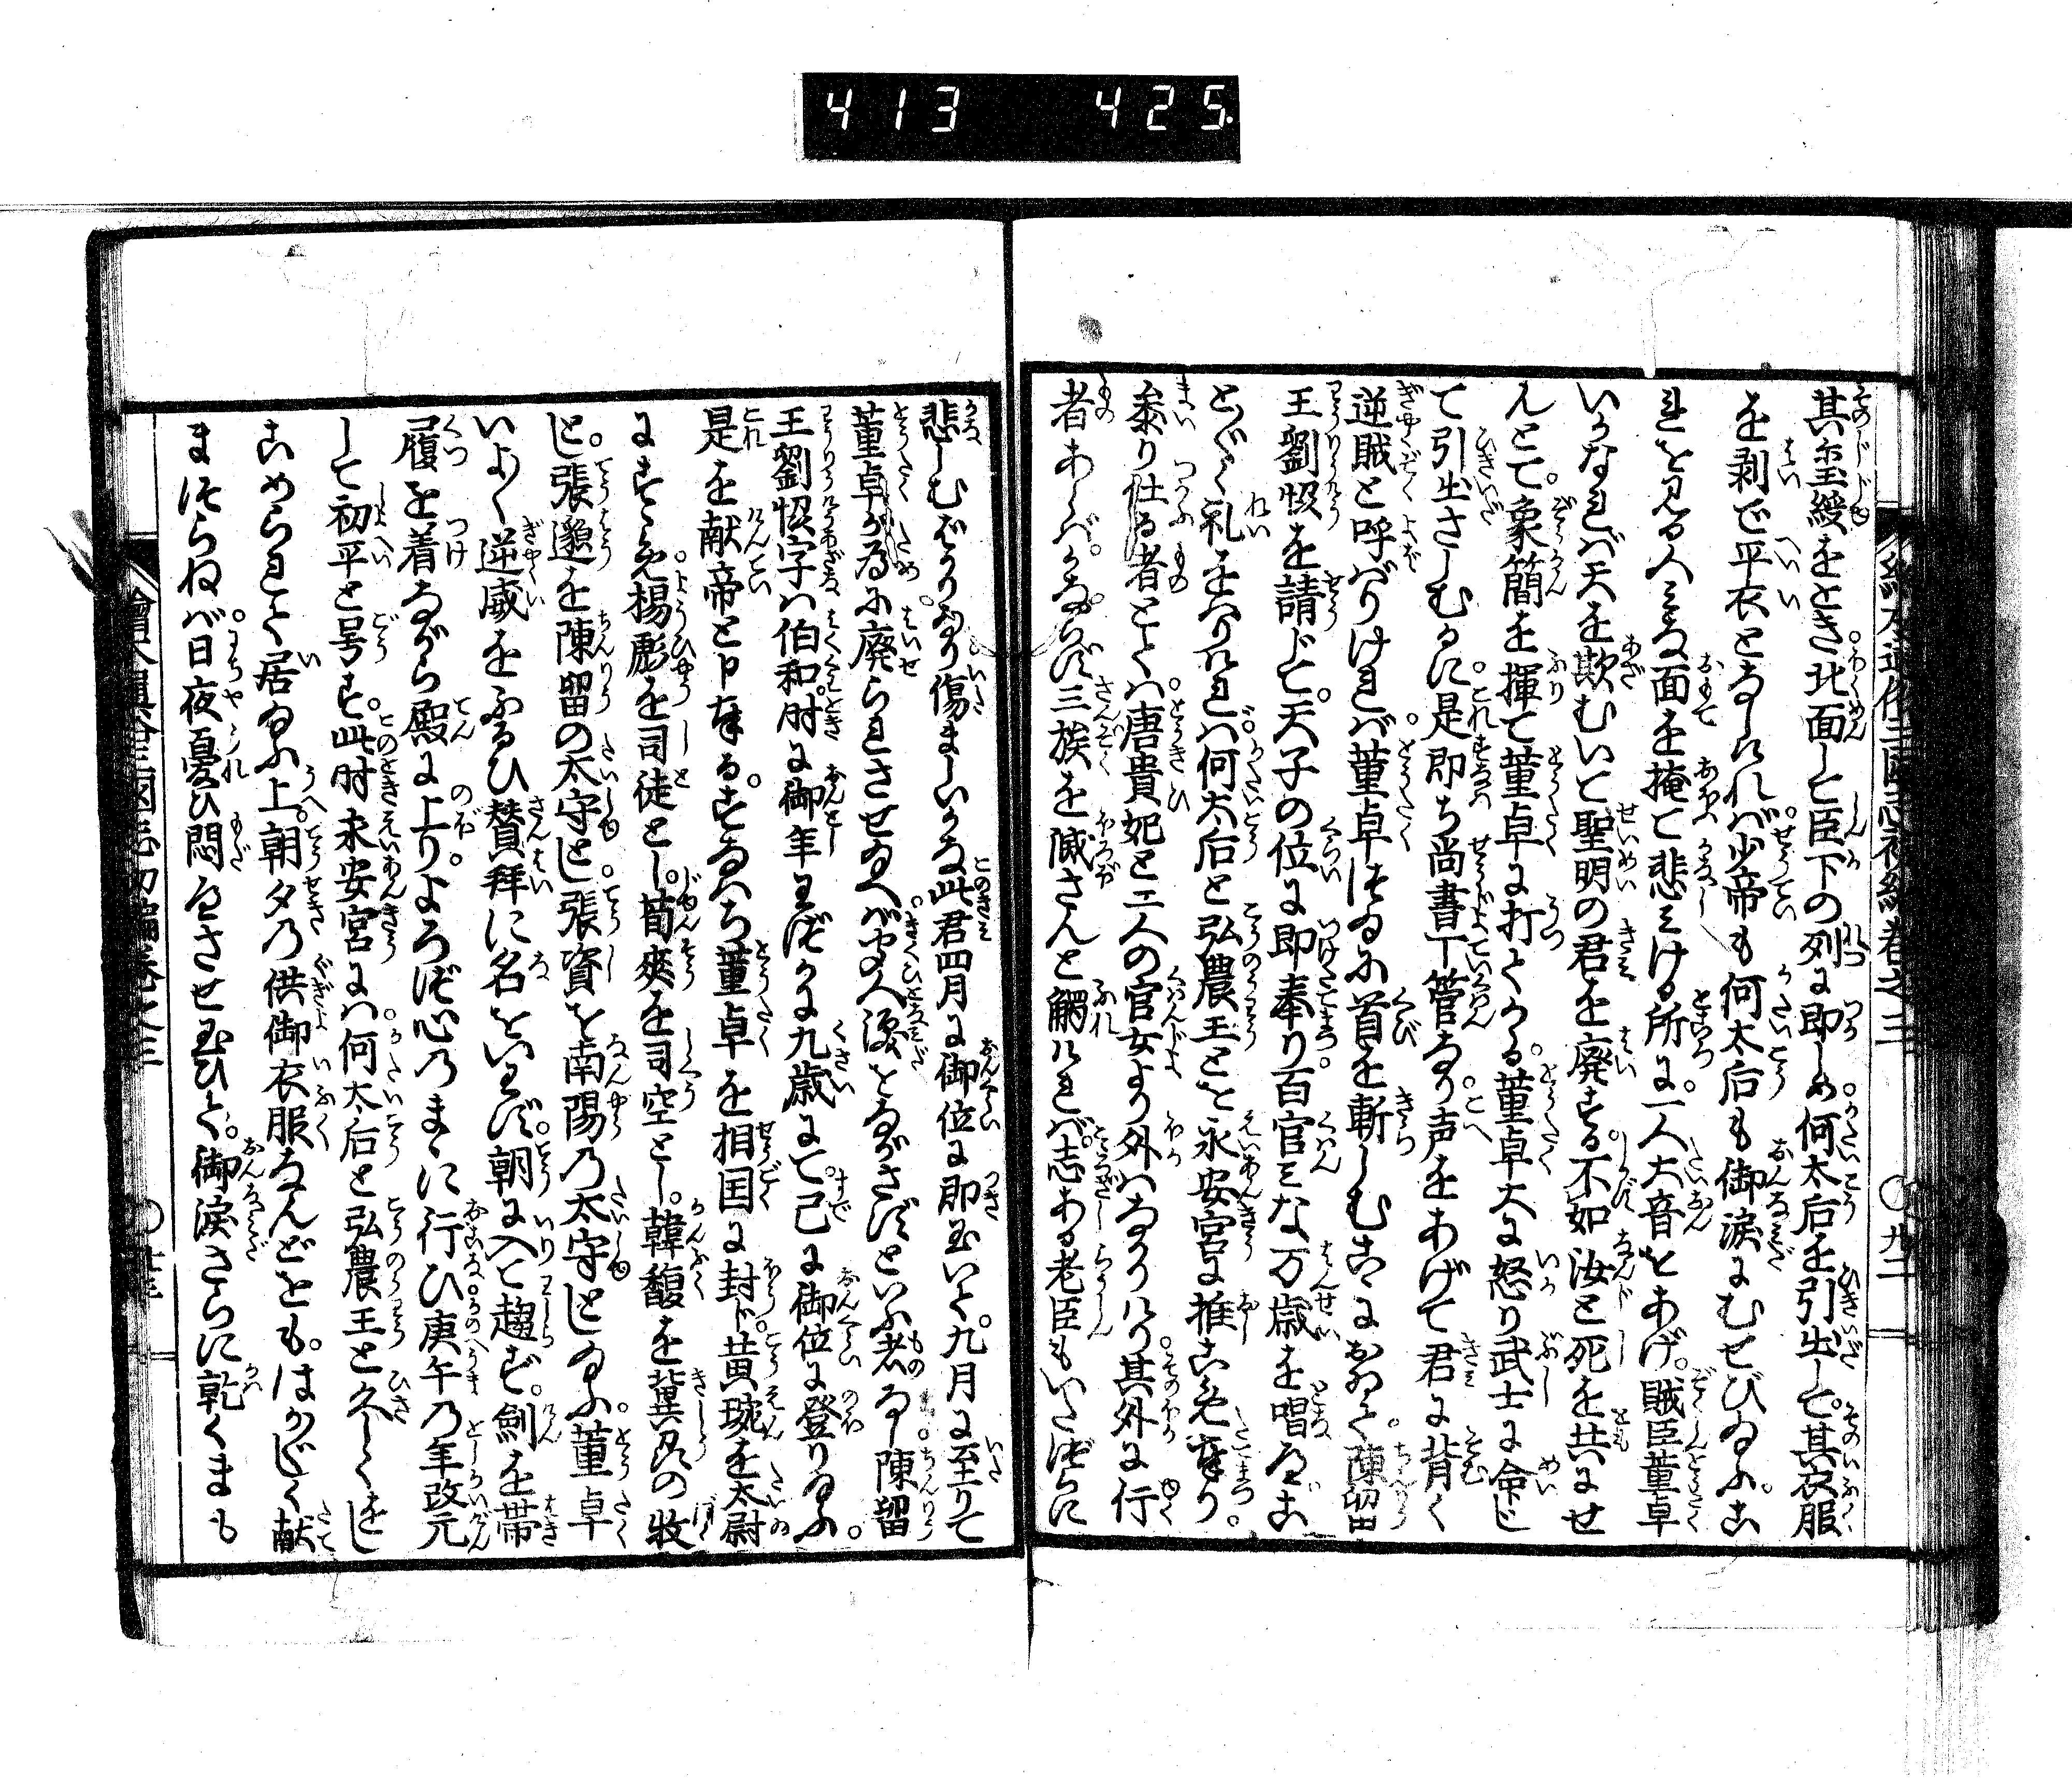 413 425
其璽綬をとき北面して臣下の列に即しめ何太后を引出して其衣服
を剥で平衣となしければ少帝も何太后も御涙にむせび給ふこ
れを見る人みな面を掩て悲みける所に一人大音をあげ賊臣董卓
いかなれば天を欺むいて聖明の君を廃する不如汝と死を共にせ
んとて象簡を揮て董卓に打てかゝる董卓大に怒り武士に命じ
て引出さしむるに是即ち尚書丁管なり声をあげて君に背く
逆賊と呼ばりければ董卓つゐに首を斬しむこゝにおゐて陳留
王劉恊を請じて天子の位に即奉り百官みな万歳を唱へこ
とごとく礼をへりければ何太后と弘農王とを永安宮に推こめ奉り
参り仕る者とては唐貴妃と二人の官女より外はなかりけり其外に行
者あらばかならず三族を滅さんと觸ければ志ある老臣もいたづらに
繪本通俗三國志初編巻之三 〇廿二
悲しむばかりなり傷ましいかな此君四月に御位に即玉いて九月に至りて
董卓が為に廃られさせ給へば聞人涙をながさずといふ者なし陳留
王劉恊字は伯和時に御年わづかに九歳にて已に御位に登り給ふ
是を献帝と申奉るすなはち董卓を相国に封ド黄琬を太尉
にすゝめ楊彪を司徒とし荀爽を司空とし韓馥を冀州の牧
とし張邈を陳留の太守とし張資を南陽の太守とし給ふ董卓
いよ〱逆威をふるひ賛拜に名をいわず朝に入て趨ず劍を帯
履を着ながら殿に上りよろづ心のまゝに行ひ庚午の年改元
して初平と号す此時永安宮には何太后と弘農王と久しくをし
こめられて居給ふ上朝夕の供御衣服なんどをもはか〲しく献
まつらねば日夜憂ひ悶へさせ玉ひて御涙さらに乾くまも
繪本通俗三國志初編巻之三